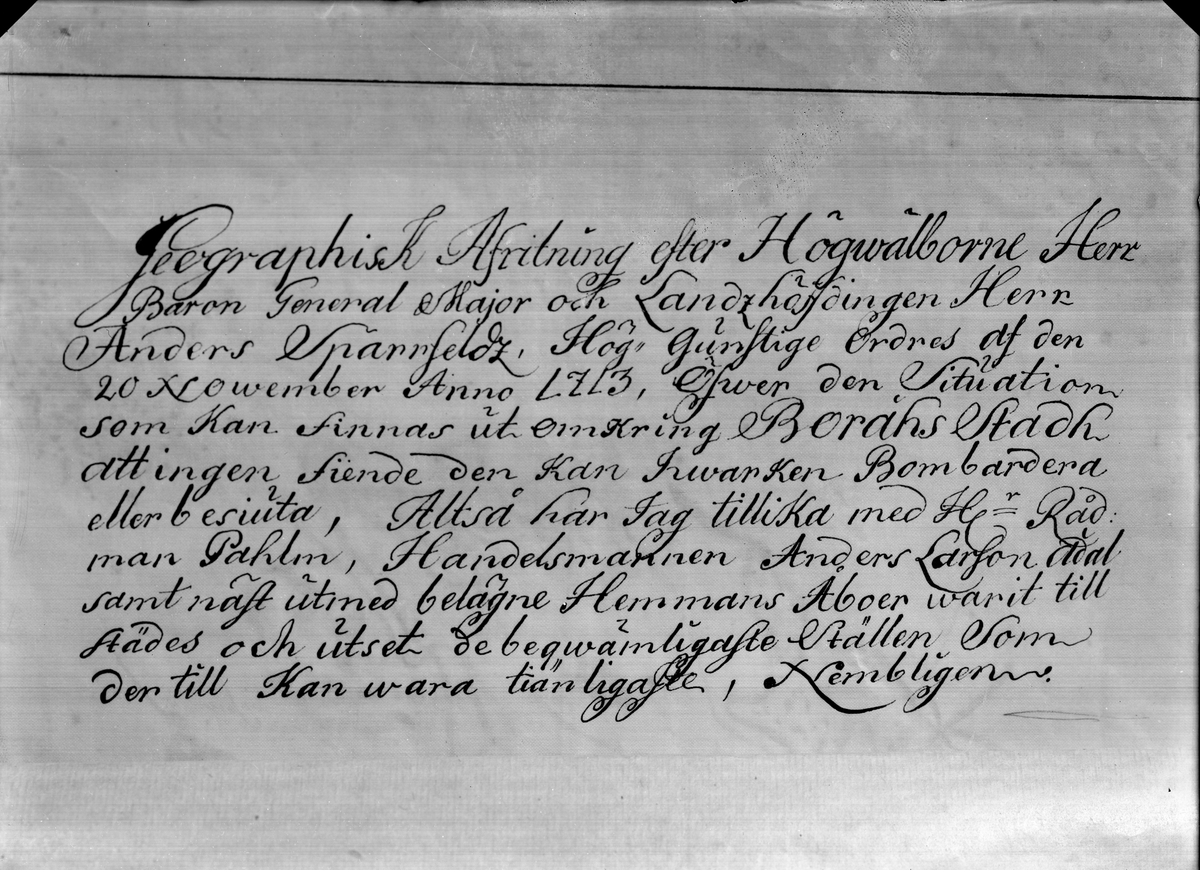 Geographisk Afritning efter Högwälborne Herr
Baron General Major och Landzhöfdingen Herr
Anders Sparrfeldz, Hög Gunstige Ordres af den
20 November Anno 1713, Öfwer den Situation
som Kan finnas ut omkring Boråhs Stadh
att ingen fiende den Kan hwarken Bombardera
eller besiuta, Altså har Jag tillika med Hr Råd:
man Pahlm, Handelsmannen Anders Larson
samt näst utmed belägne Hemmans Åboer warit till
städes och utset de beqwämligaste Ställen Som
der till Kan wara tiänligaste, Nembligen.